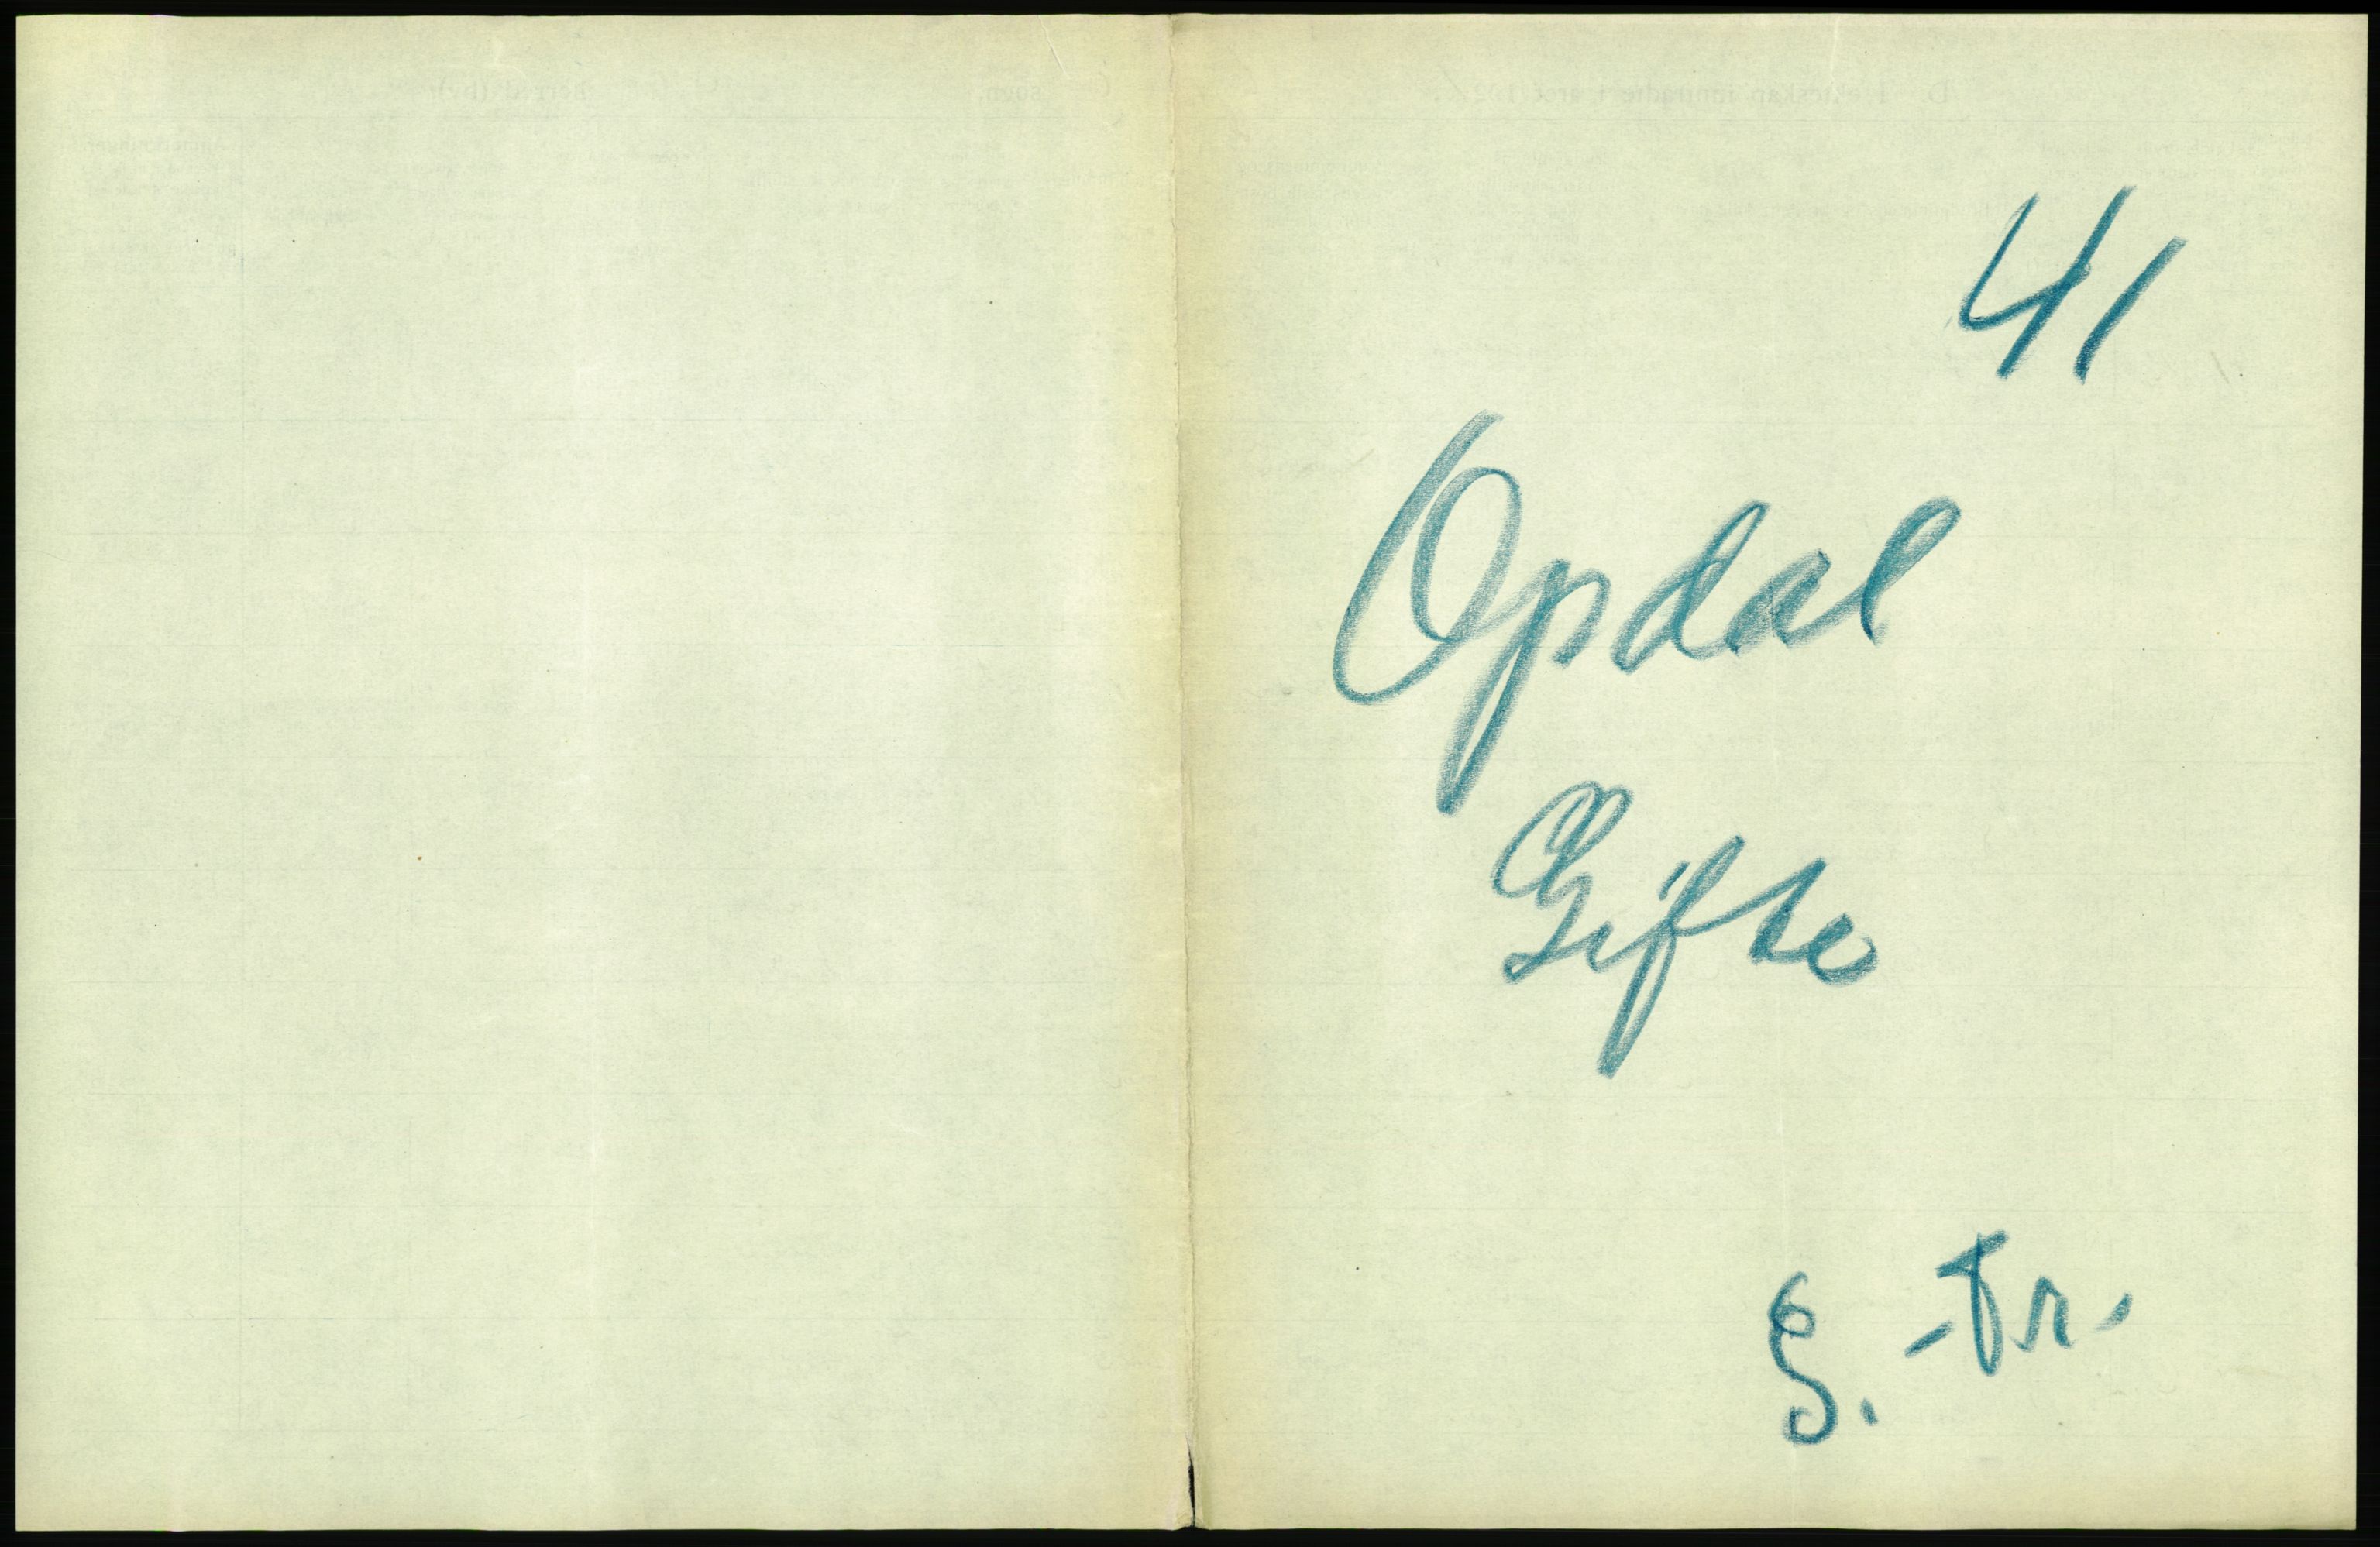 41
Opdal
Gifte
S. -Tr.